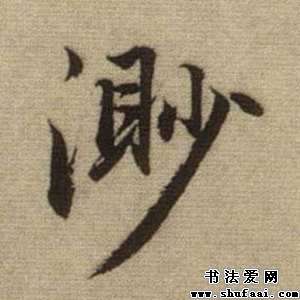 渺
书法爱网
www.shufaai.com